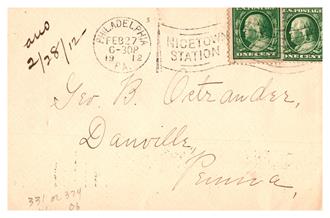 ans
2/28/12
PHILADELPHIA
FEB 27
6-30P
1912
PA.
NICETOWN
STATION
U.S. POSTAGE
ONE CENT
ONE CENT
Geo B. Ostrander,
Danville,
Penna,
331 or 374